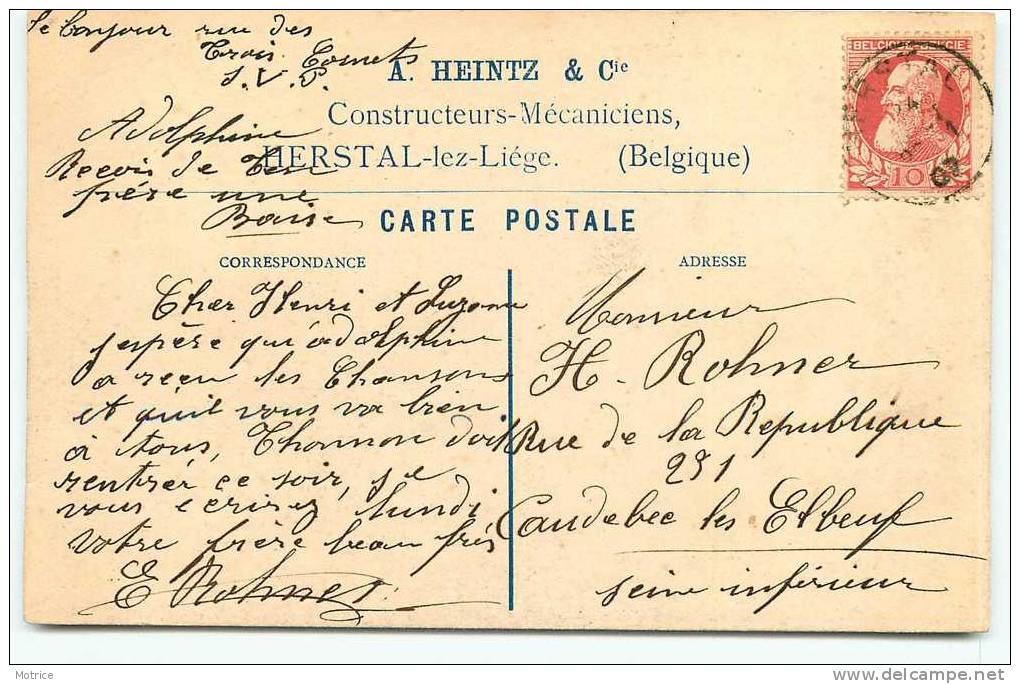 le bonjour rue des
Trois Cornets
S.V.P.
Adolphine
Recois de
frère une
Baise
A. HEINTZ & Cie
Constructeurs-Mécaniciens,
HERSTAL-lez-Liége. (Belgique)
CARTE POSTALE
CORRESPONDANCE
ADRESSE
BELGIQUE BELGIE
HERSTAL
10
09
Cher Henri et Suzanne
j'espère qui adolphine
a reçu les Chansons
et quil vous va bien
à tous, Thonnon doit
rentrér ce soir, je
vous ecrirez lundi
votre frère beau frés
E Rohner
Monsieur
H. Rohner
Rue de la Republique
251
Caudebec les Elbeuf
seine inférieur
Motrice
http://www.delcampe.net